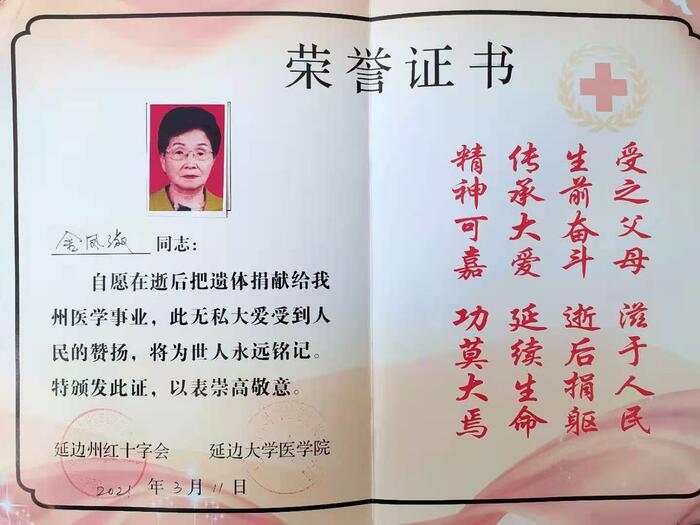 荣誉证书
金凤淑 同志：
自愿在逝后把遗体捐献给我
州医学事业，此无私大爱受到人
民的赞扬，将为世人永远铭记。
特颁发此证，以表崇高敬意。
延边州红十字会 延边大学医学院
2021 年 3 月 11 日
受之父母 滋于人民
生前奋斗 逝后捐躯
传承大爱 延续生命
精神可嘉 功莫大焉